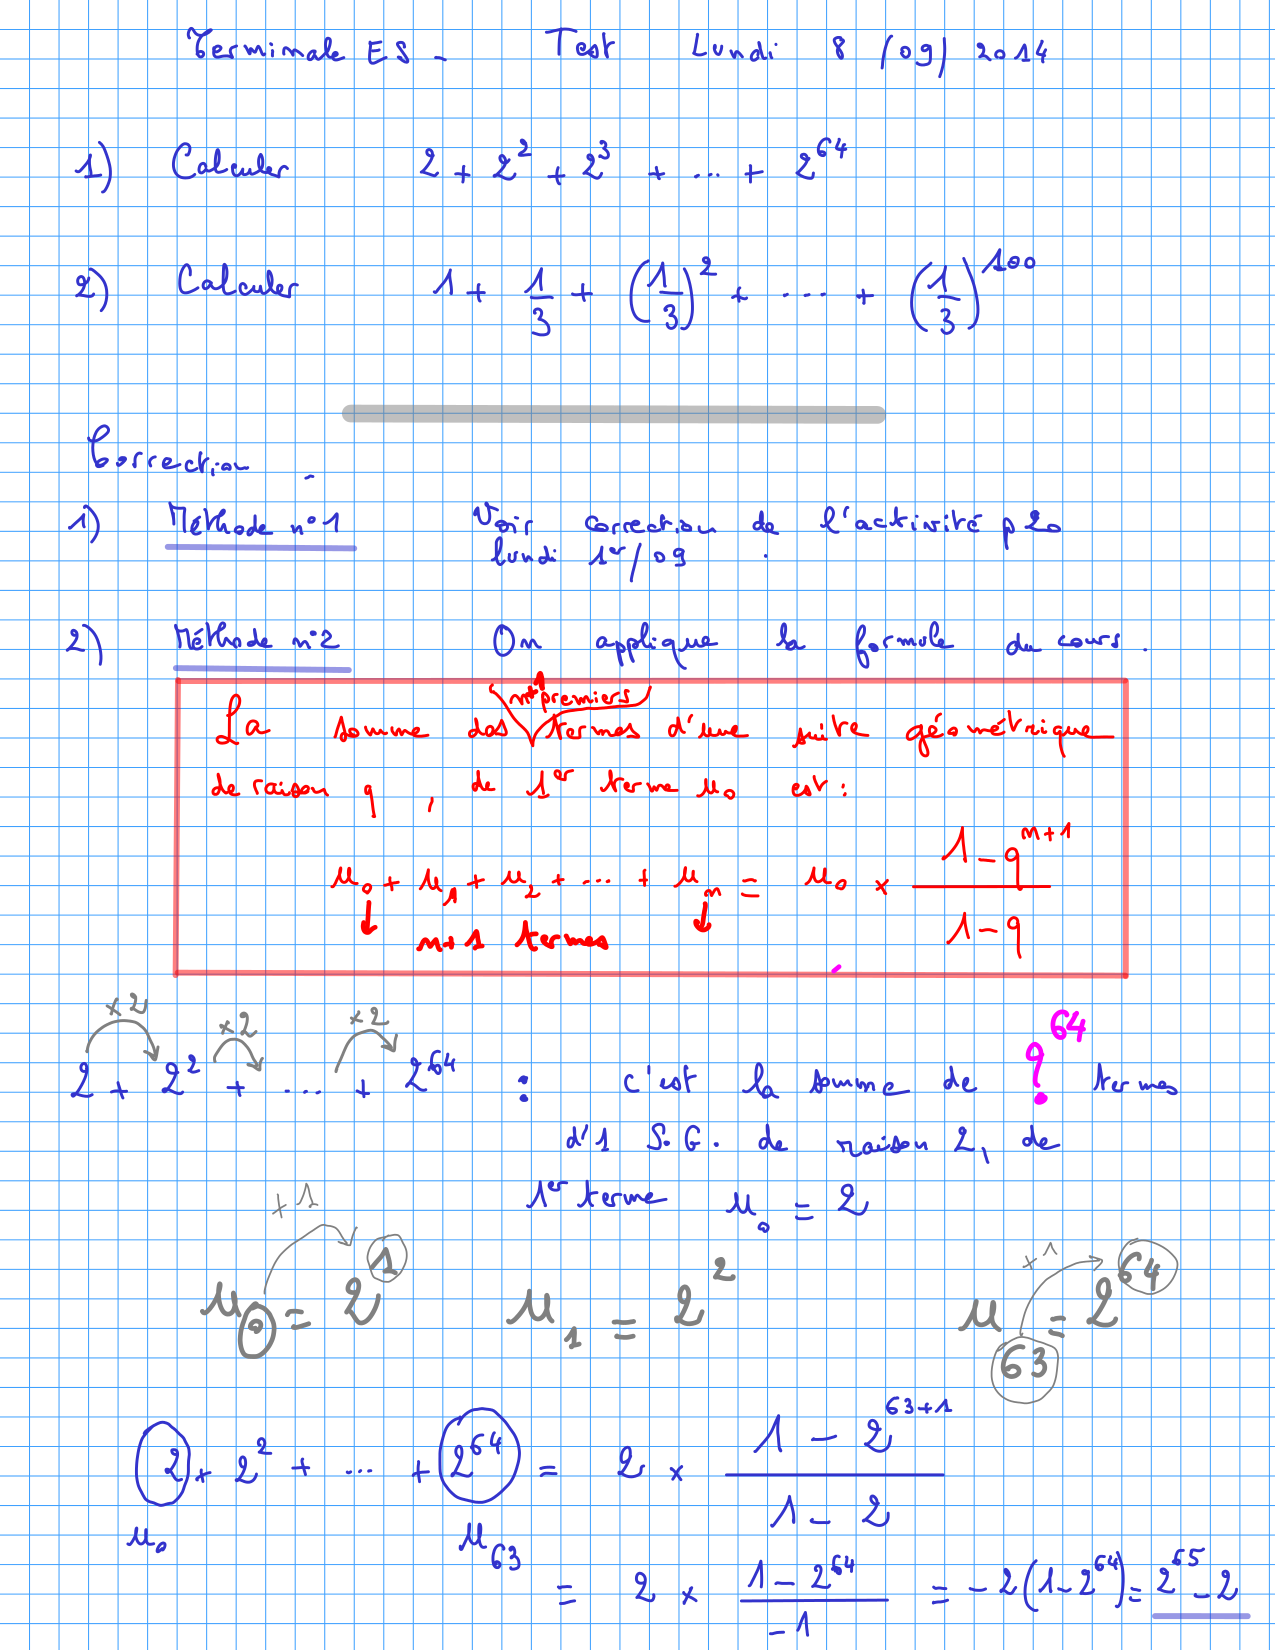 Terminale ES - Test Lundi 8 /09/ 2014
1) Calculer 2 + 2² + 2³ + ... + 2⁶⁴
2) Calculer 1 + 1/3 + (1/3)² + .... + (1/3)¹⁰⁰
Correction.
1) Méthode n°1 Voir correction de l'activité p 20
lundi 1er/09.
2) Méthode n°2 On applique la formule du cours.
n+1 premiers
La somme des termes d'une suite géométrique
de raison q, de 1er terme u₀ est :
u₀ + u₁ + u₂ + ... + uₙ = u₀ × (1 - qⁿ⁺¹)/(1 - q)
↓ n+1 termes ↓
×2 ×2 ×2 64
2 + 2² + .... + 2⁶⁴ : c'est la somme de ? termes
d'1 S.G. de raison 2, de
1er terme u₀ = 2
+1 +1
u₀ = 2¹ u₁ = 2² u₆₃ = 2⁶⁴
2 + 2² + ... + 2⁶⁴ = 2 × (1 - 2⁶³⁺¹)/(1 - 2)
u₀ u₆₃
= 2 × (1 - 2⁶⁴)/(-1) = -2(1-2⁶⁴) = 2⁶⁵ - 2